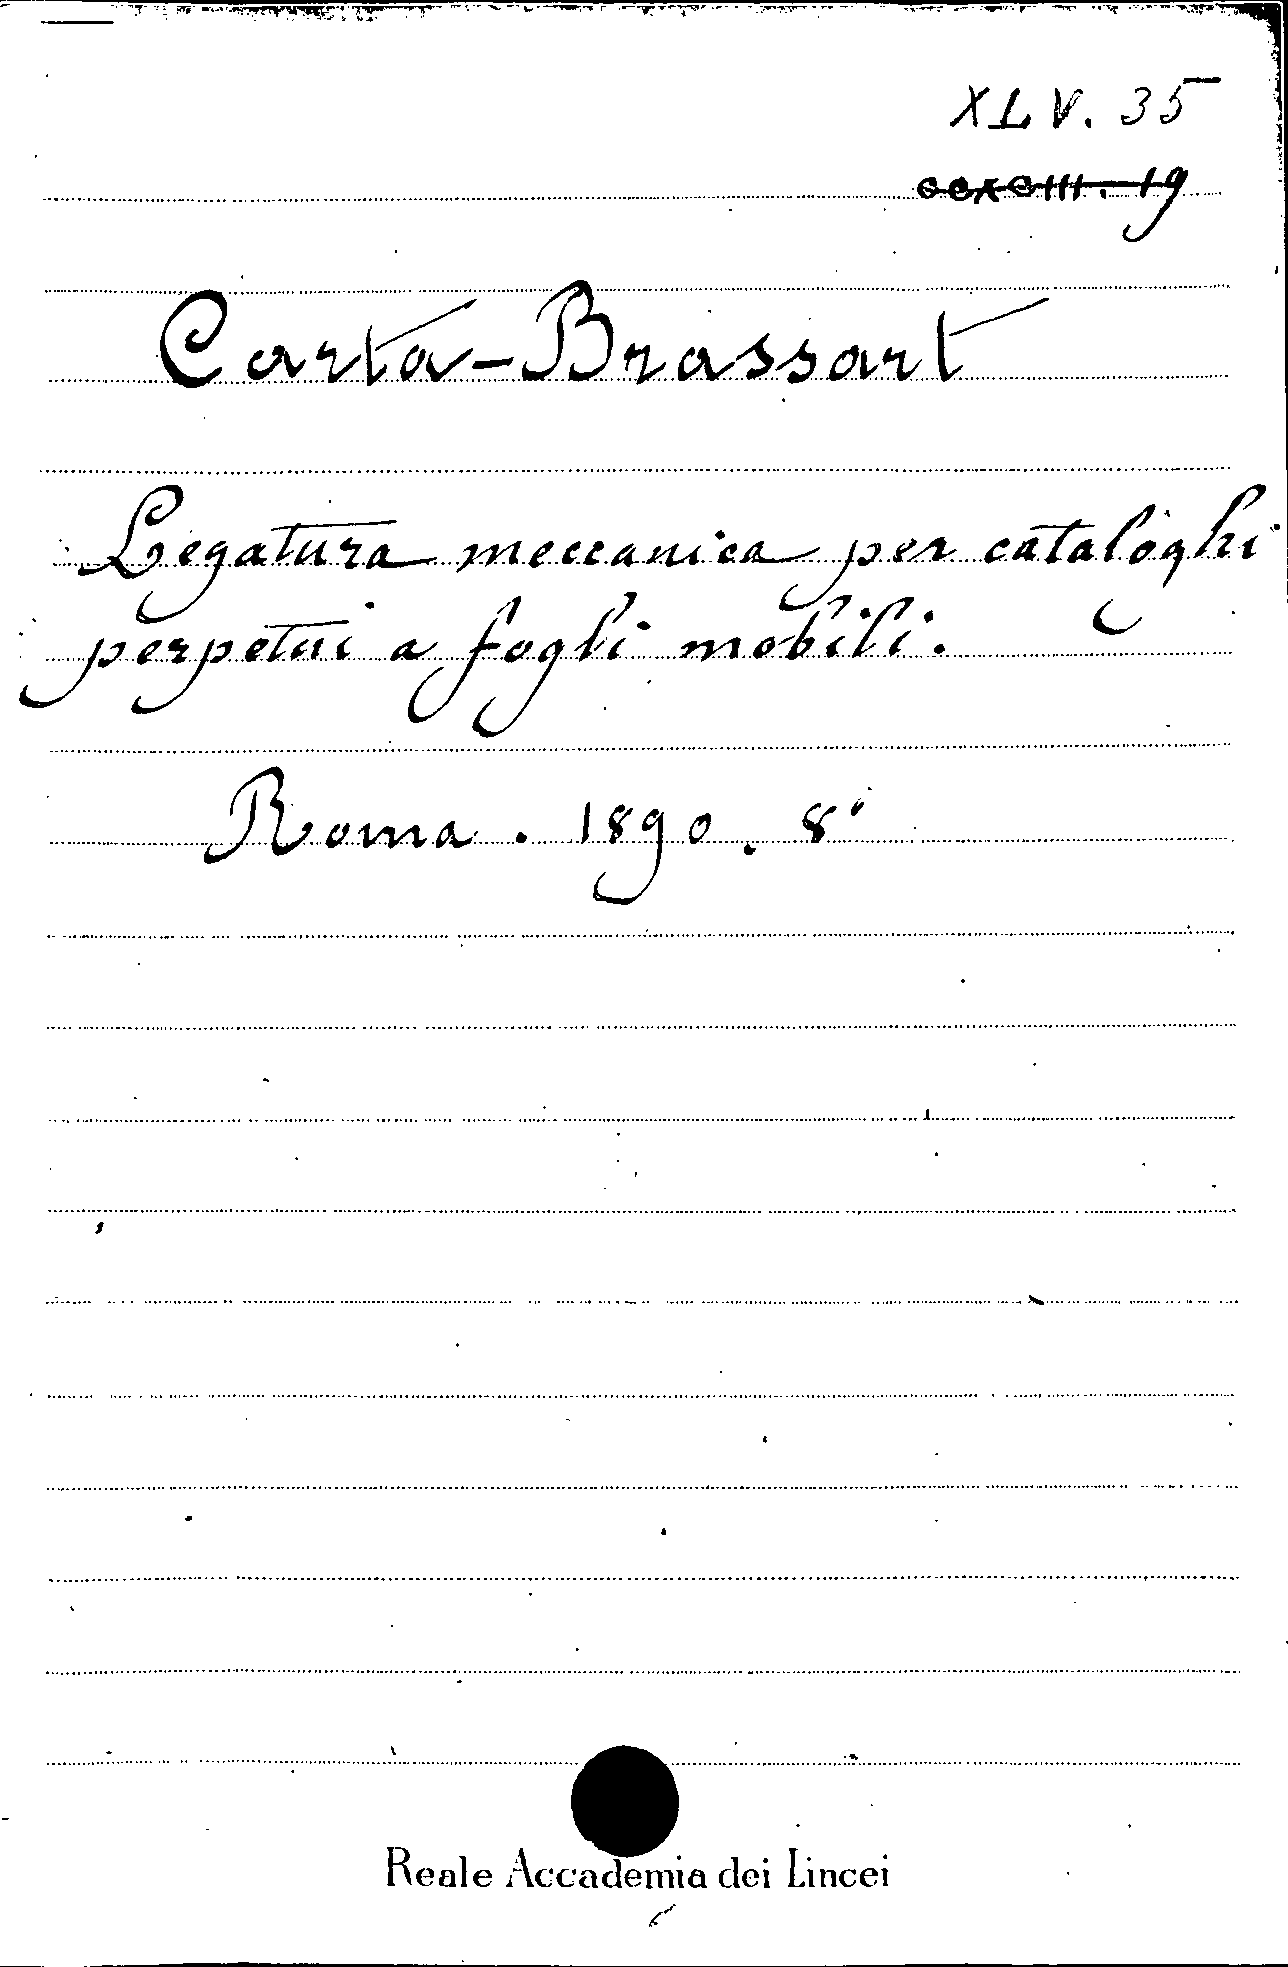 XLV. 35
CCXCIII. 19
Carta-Brassart
Legatura meccanica per cataloghi
perpetui a fogli mobili.
Roma. 1890. 8°
Reale Accademia dei Lincei